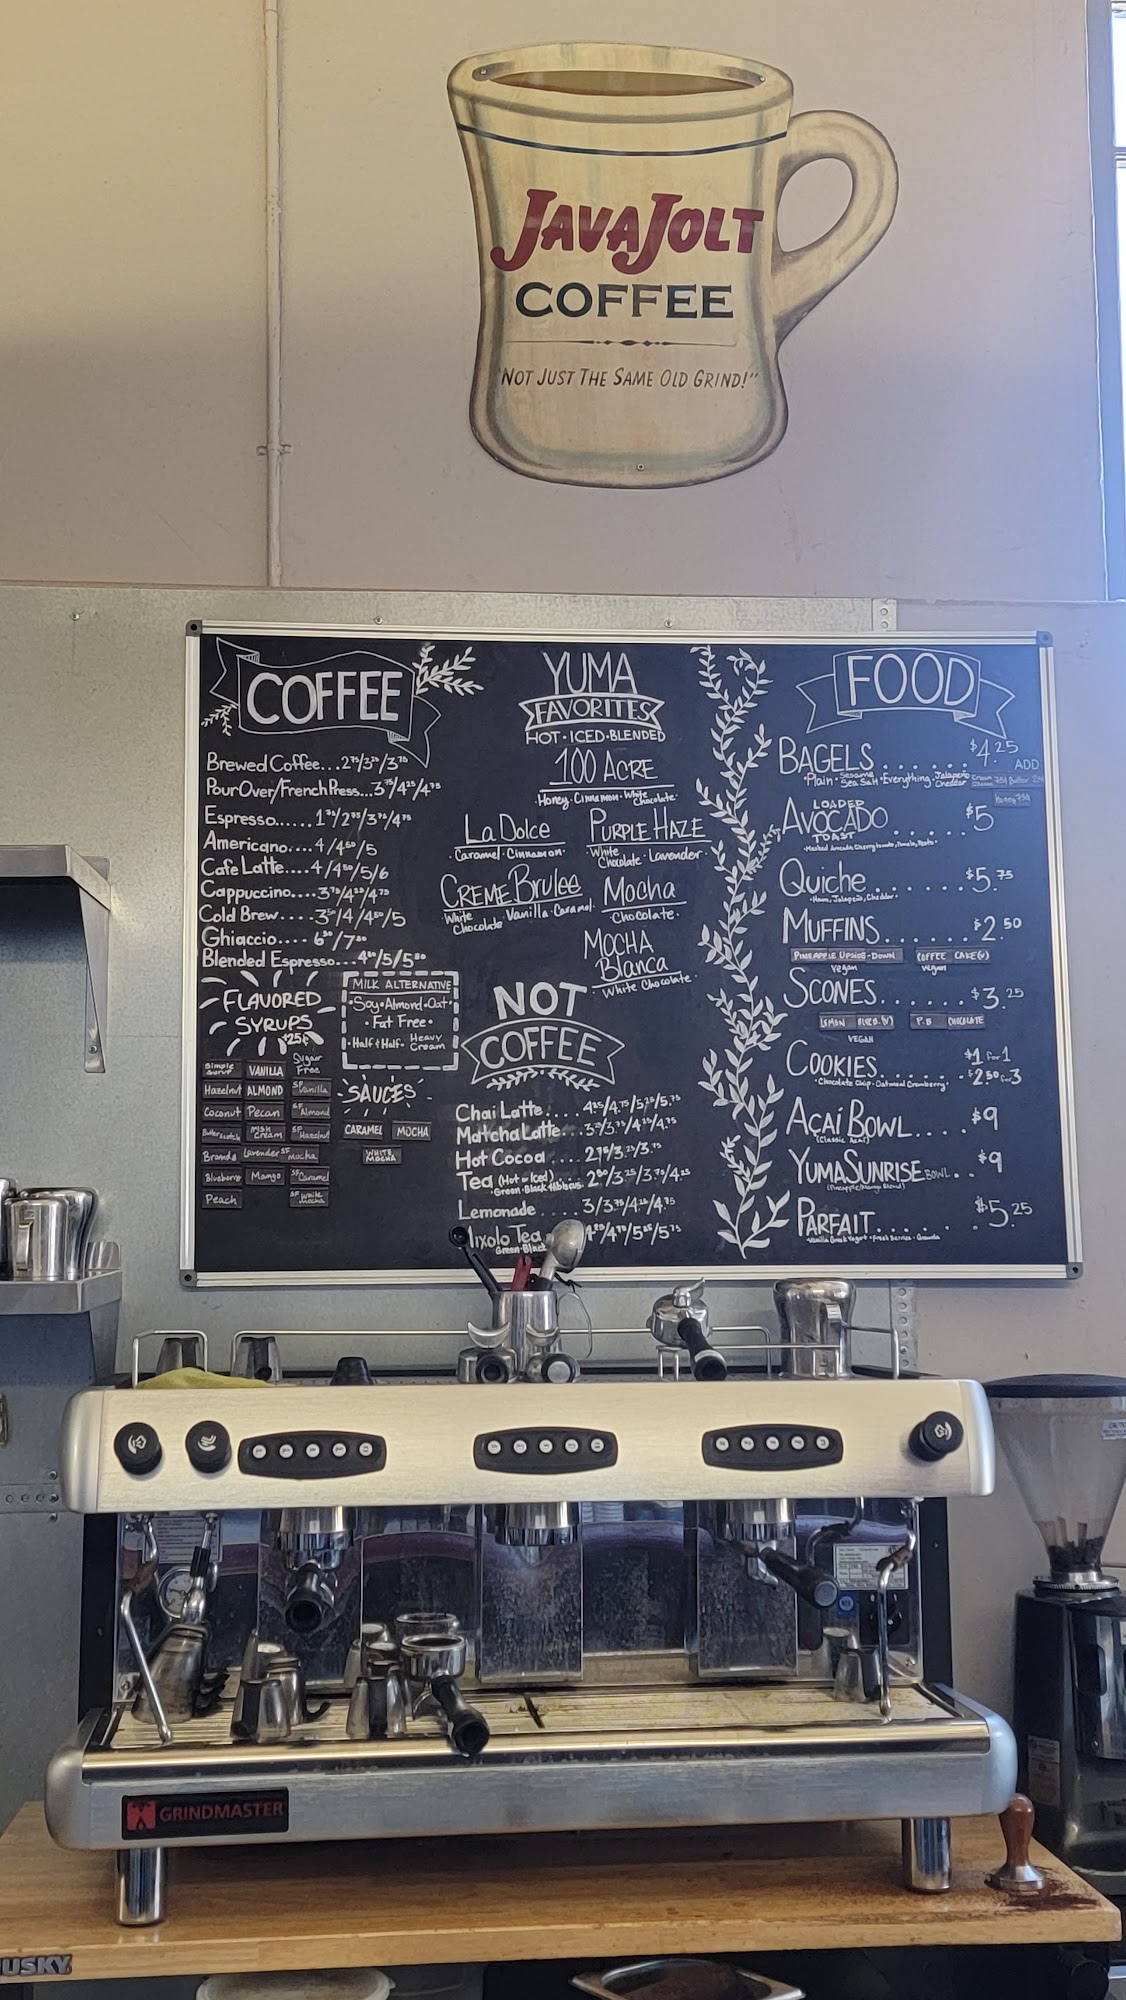 JAVA JOLT
COFFEE
NOT JUST THE SAME OLD GRIND!"
COFFEE
Brewed Coffee...2⁷⁵/3²⁵/3⁷⁵
Pour Over/French Press...3⁷⁵/4²⁵/4⁷⁵
Espresso......1⁷⁵/2⁷⁵/3⁷⁵/4⁷⁵
Americano....4/4⁵⁰/5
Cafe Latte....4/4⁵⁰/5/6
Cappuccino....3⁷⁵/4²⁵/4⁷⁵
Cold Brew....3⁵⁰/4/4⁵⁰/5
Ghiaccio....6⁵⁰/7⁵⁰
Blended Espresso...4⁵⁰/5/5⁵⁰
FLAVORED
SYRUPS
+25¢
Simple Syrup
VANILLA
Sugar Free
Hazelnut
ALMOND
SF Vanilla
Coconut
Pecan
SF Almond
Butterscotch
Irish Cream
SF Hazelnut
Lavender
SF Mocha
Blueberry
Mango
SF Caramel
Peach
SF White Mocha
MILK ALTERNATIVE
·Soy·Almond·Oat·
·Fat Free·
·Half & Half· Heavy Cream
SAUCES
CARAMEL
MOCHA
WHITE MOCHA
YUMA
FAVORITES
HOT·ICED·BLENDED
100 ACRE
·Honey·Cinnamon·White Chocolate·
La Dolce
·Caramel·Cinnamon·
PURPLE HAZE
White Chocolate·Lavender·
CREME Brulee
White Chocolate·Vanilla·Caramel·
Mocha
·Chocolate·
MOCHA
Blanca
·White Chocolate·
NOT
COFFEE
Chai Latte....4²⁵/4.⁷⁵/5.²⁵/5.⁷⁵
Matcha Latte...3.²⁵/3.⁷⁵/4.²⁵/4.⁷⁵
Hot Cocoa....2.⁷⁵/3.²⁵/3.⁷⁵
Tea (Hot or Iced)...2⁵⁰/3.²⁵/3.⁷⁵/4.²⁵
·Green·Black·Hibiscus·
Lemonade....3/3.⁷⁵/4.²⁵/4.⁷⁵
Mixolo Tea
Green·Black
FOOD
BAGELS......$4.²⁵
·Plain·Sesame Sea Salt·Everything·Jalapeño Cheddar
ADD
honey 75¢
LOADED
AVOCADO......$5
TOAST
Quiche......$5.⁷⁵
·Ham, Jalapeño, Cheddar·
MUFFINS......$2.⁵⁰
PINEAPPLE UPSIDE-DOWN
Vegan
COFFEE CAKE(V)
Vegan
SCONES......$3.²⁵
VEGAN
P.B CHOCOLATE
COOKIES......$1 for 1
·Chocolate Chip·Oatmeal Cranberry·
$2.50 for 3
AÇAÍ BOWL....$9
(Classic Acai)
YUMA SUNRISE BOWL..$9
(Pineapple/Mango Blend)
PARFAIT.......$5.²⁵
Vanilla Greek Yogurt·Fresh Berries·Granola
GRINDMASTER
USKY